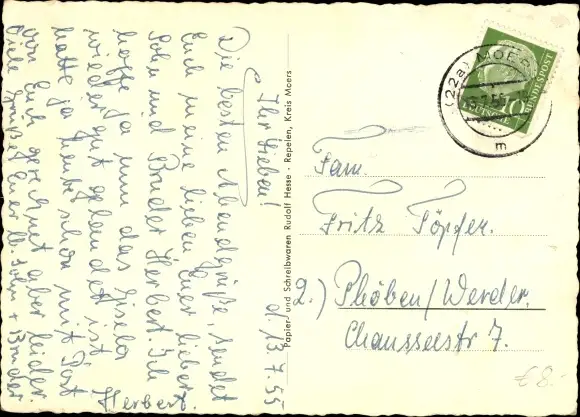 d. 13.7.55
Ihr Lieben!
Die besten Abendgrüße, sendet
Euch meine lieben Euer lieber
Sohn und Bruder Herbert. Ich
hoffe ja nun das Gisela
wieder gut gelandet ist
hatte ja heute schon mit Post
von Euch gerechnet aber leider
Viele Grüße Euer lb. Sohn + Bruder
Herbert.
Papier- und Schreibwaren Rudolf Hesse - Repelen, Kreis Moers
(22a) MOERS
m
DEUTSCHE BUNDESPOST
10
Fam.
Fritz Töpfer.
2.) Phöben/Werder.
Chausseestr 7.
€ 8.-